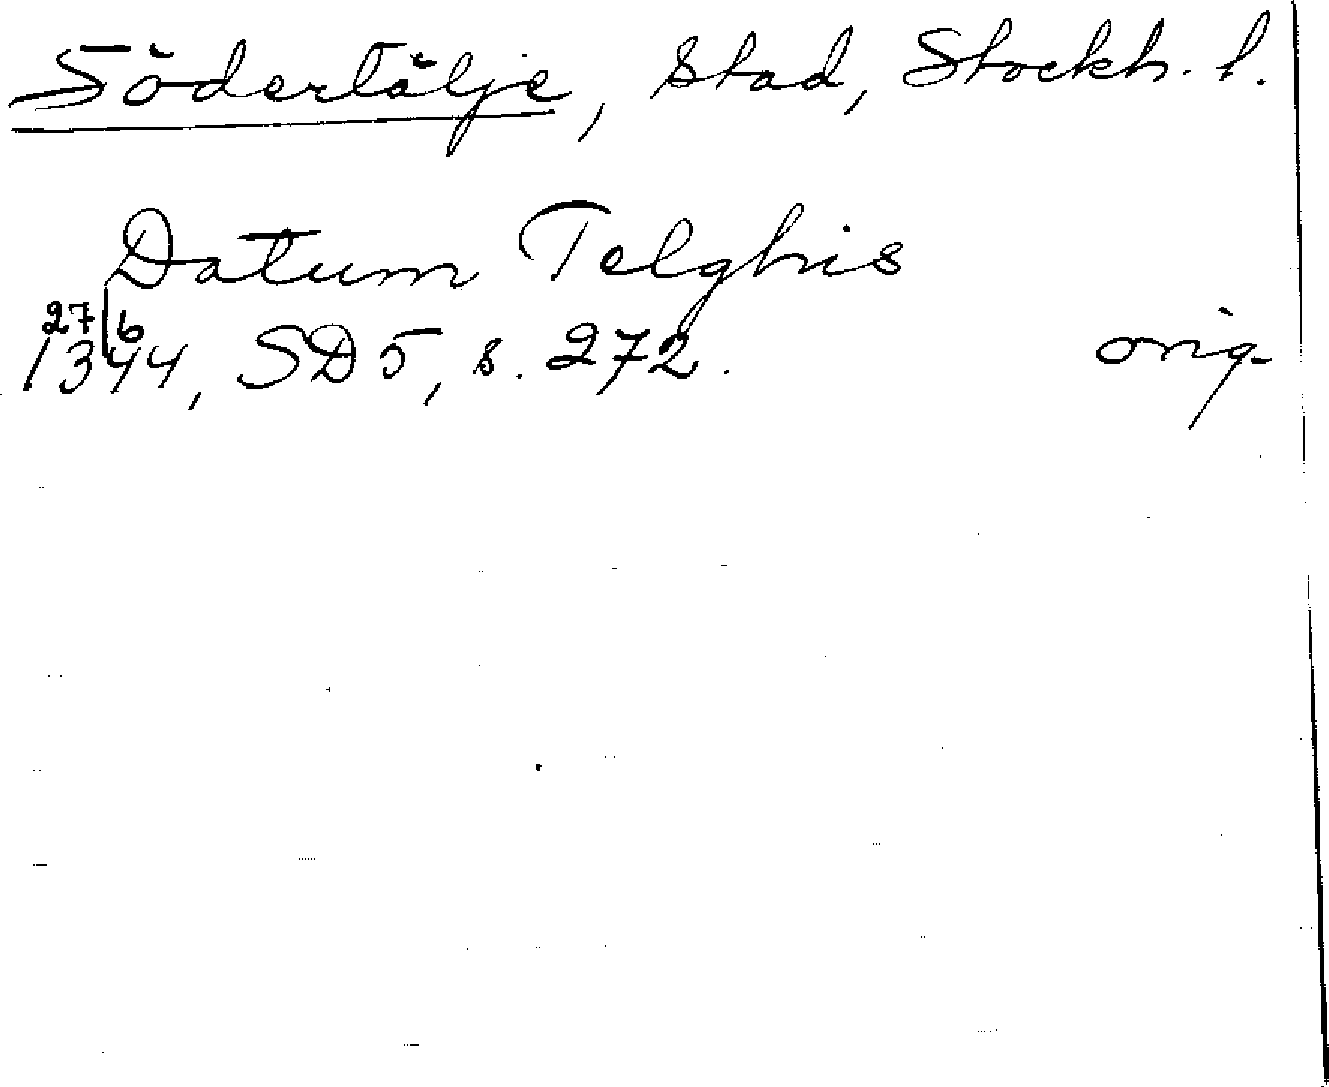 Södertälje, Stad, Stockh. l.
Datum Telghis
27/6
1344, SD 5, s. 272. orig.